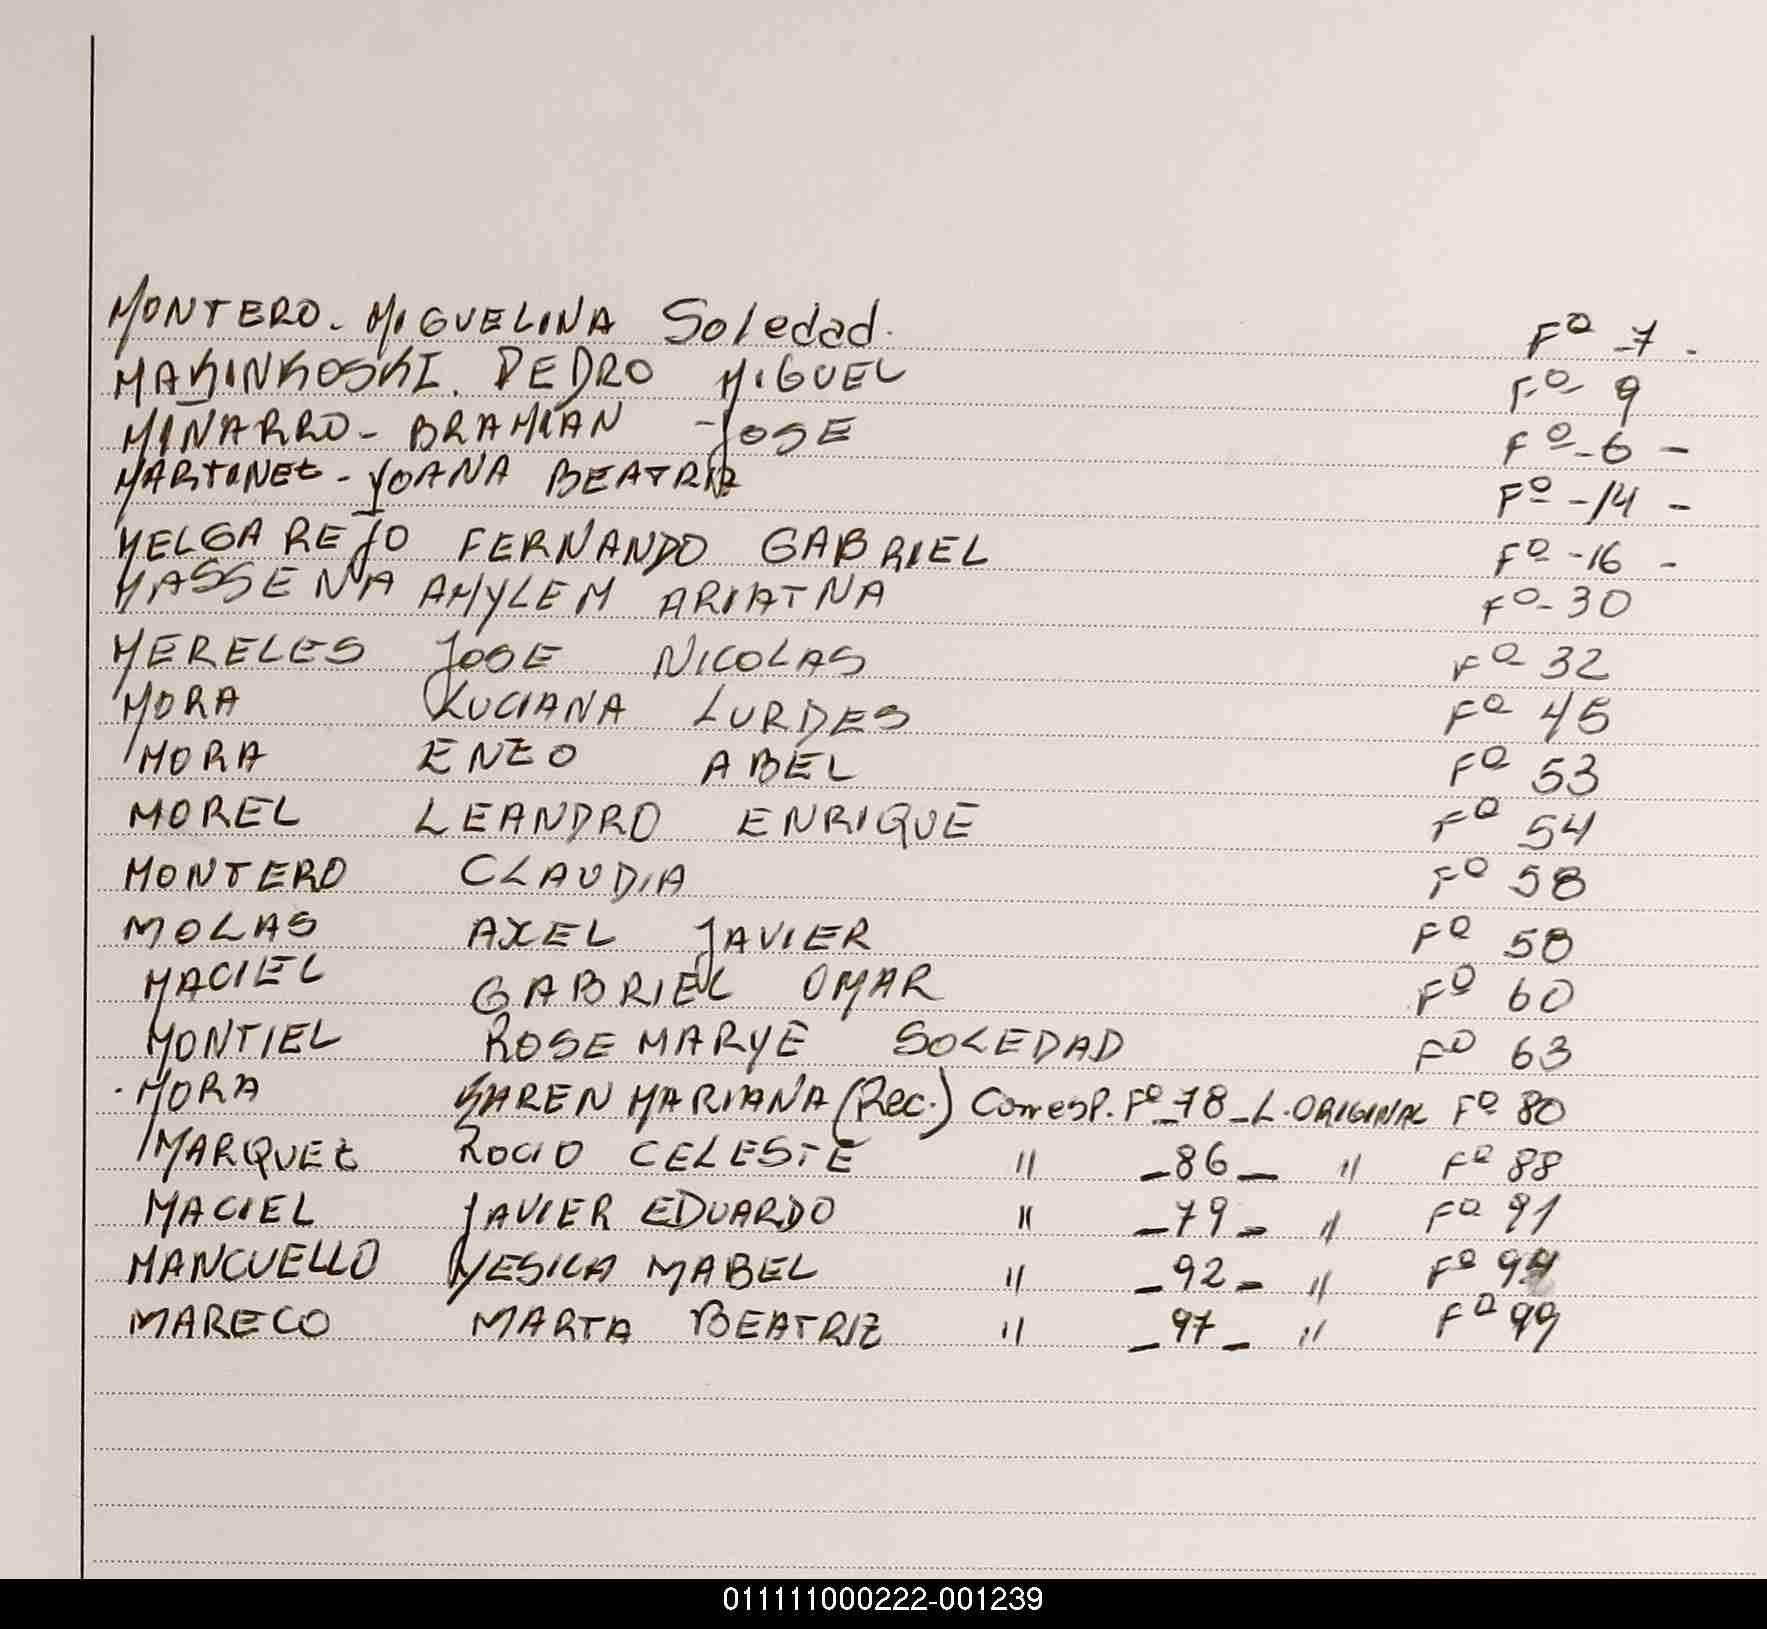 MONTERO - MIGUELINA Soledad. Fº -7-
MAKINKOSKI. PEDRO MIGUEL Fº 9
MIÑARRO - BRAMIAN - JOSE Fº -6-
MARTINEZ - YOANA BEATRIZ Fº -14-
MELGAREJO FERNANDO GABRIEL Fº -16-
MASSENA AMYLEM ARIATNA Fº -30
MERELES JOSE NICOLAS Fº 32
MORA LUCIANA LURDES Fº 45
MORA ENZO ABEL Fº 53
MOREL LEANDRO ENRIQUE Fº 54
MONTERO CLAUDIA Fº 58
MOLAS AXEL JAVIER Fº 58
MACIEL GABRIEL OMAR Fº 60
MONTIEL ROSEMARYE SOLEDAD Fº 63
MORA KAREN MARIANA (Rec.) Corresp. Fº -78- L. ORIGINAL Fº 80
MARQUEZ ROCIO CELESTE " -86- " Fº 88
MACIEL JAVIER EDUARDO " -79- " Fº 91
MANCUELLO YESICA MABEL " -92- " Fº 94
MARECO MARTA BEATRIZ " -97- " Fº 99
011111000222-001239